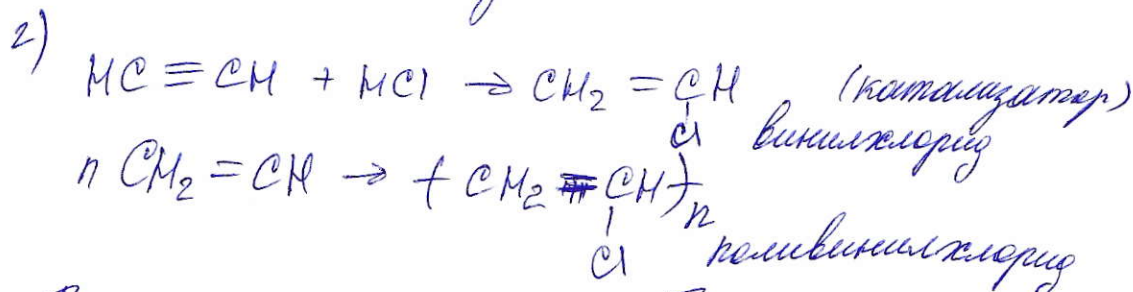 2)
HC ≡ CH + HCl → CH₂ = CH (катализатор)
Cl винилхлорид
n CH₂ = CH → ( CH₂ – CH )n
Cl поливинилхлорид